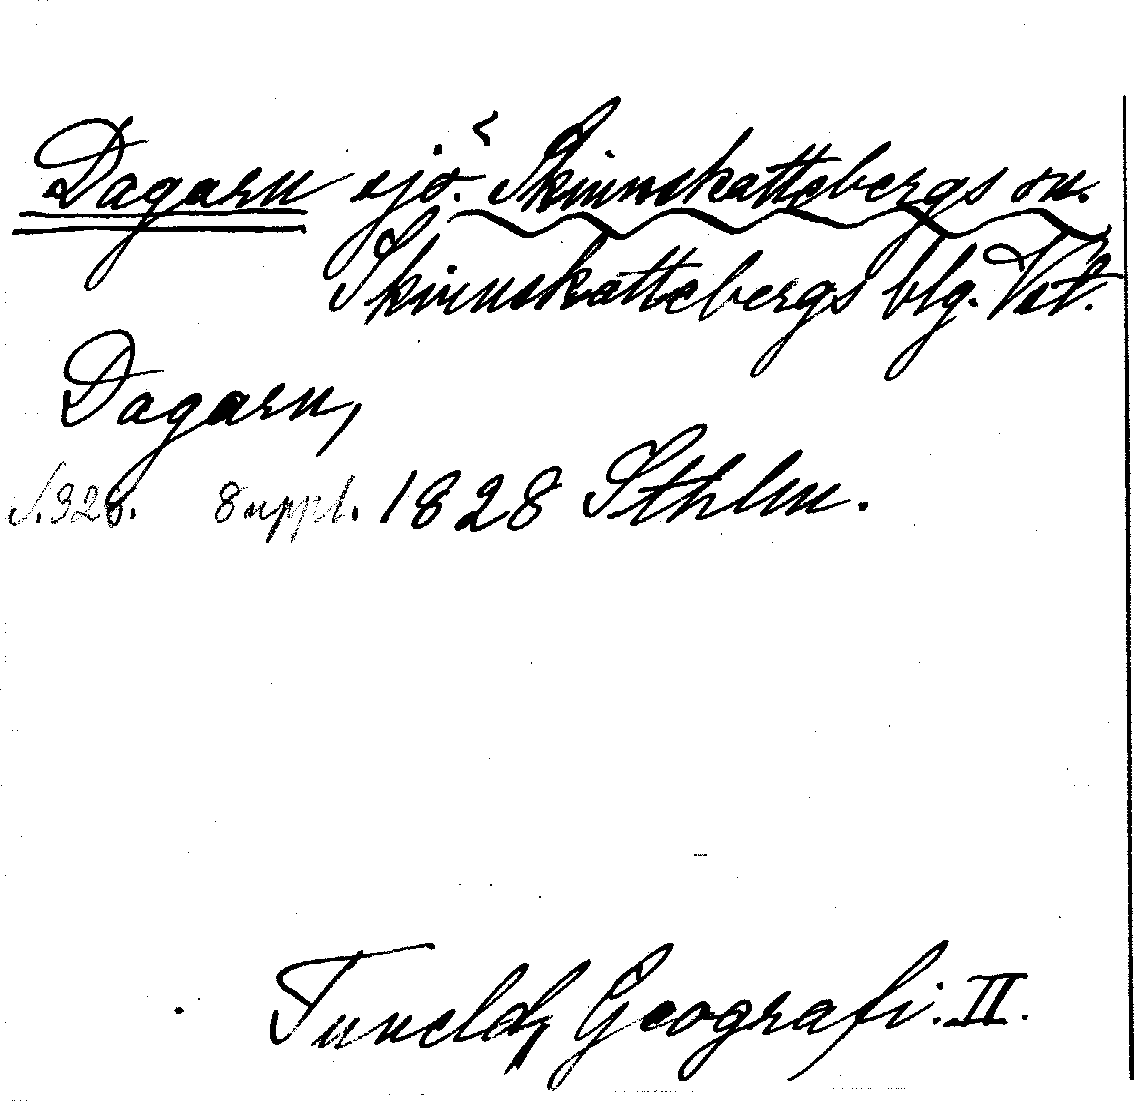 Dagarn sjö. Skinnskattebergs sn.
Skinnskattebergs blg. Vst.
Dagarn,
S. 328. 8 uppl. 1828 Sthlm.
Tuneld, Geografi. II.